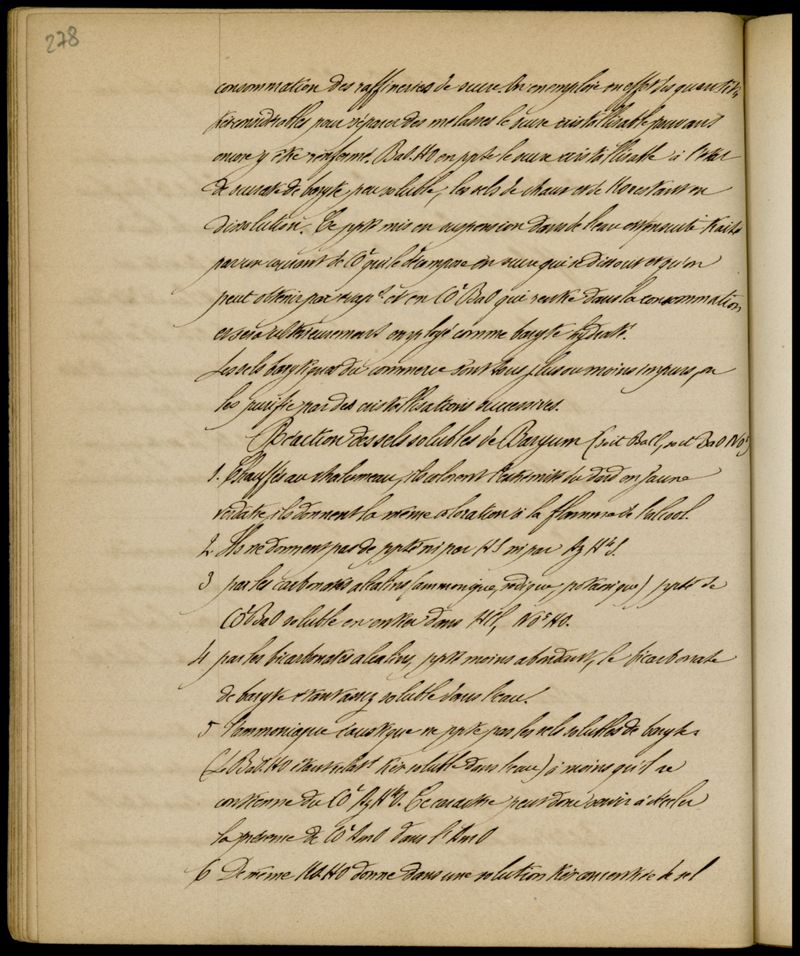 278
consommation des raffineries de sucre. On en emploie en effet des quantités
très considérables pour séparer des mélasses le sucre cristallisable pouvant
encore y être renfermé. BaO.HO en ppte le sucre cristallisable à l'état
de sucrate de baryte peu soluble, les sels de chaux et de restant en
dissolution. Ce ppté mis en suspension dans de l'eau est ensuite traité
par un courant de CO² qui le décompose en sucre qui se dissout et qu'on
peut obtenir par évapn et en CO²BaO qui rentre dans la consommation
et sera ultérieurement employé comme baryte hydraté.
Les sels barytiques du commerce sont tous plus ou moins impurs, on
les purifie par des cristallisations successives.
Réaction des sels solubles de Baryum (soit BaCl, soit BaO NO⁵)
1. Chauffés au chalumeau, ils colorent l'extrémité du dard en jaune
verdâtre, ils donnent la même coloration à la flamme de l'alcool.
2. Ils ne donnent pas de ppté ni par HS ni par AzH⁴S.
3 par les carbonates alcalins (ammonique, sodique, potassique) ppté de
CO²BaO soluble en entier dans HCl, NO⁵HO.
4 par les bicarbonates alcalins, ppté moins abondant, le bicarbonate
de baryte étant assez soluble dans l'eau.
5 L'ammoniaque caustique ne ppte pas les sels solubles de baryte
(BaO.HO étant relatt très soluble dans l'eau) à moins qu'il ne
contienne du CO²AzH⁴O. Ce caractère peut donc servir à déceler
la présence de CO²AmO dans l'AmO
6 De même HO donne dans une solution très concentrée de sel